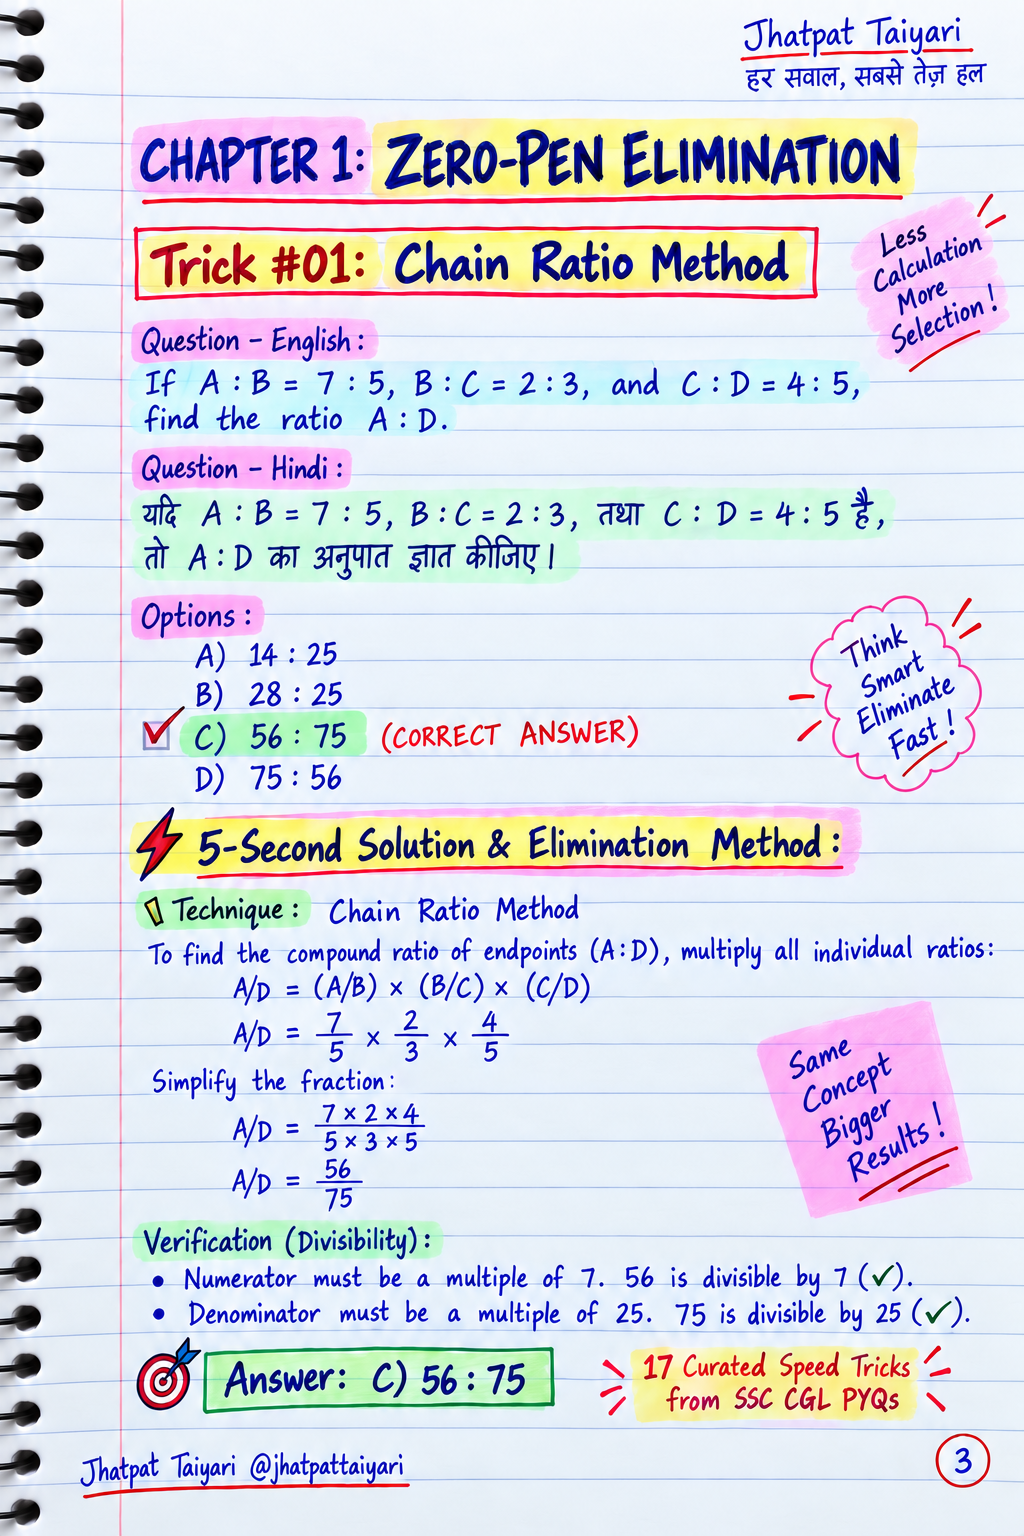 Jhatpat Taiyari
हर सवाल, सबसे तेज़ हल
CHAPTER 1: ZERO-PEN ELIMINATION
Trick #01: Chain Ratio Method
Less
Calculation
More
Selection!
Question – English:
If A : B = 7 : 5, B : C = 2 : 3, and C : D = 4 : 5,
find the ratio A : D.
Question – Hindi:
यदि A : B = 7 : 5, B : C = 2 : 3, तथा C : D = 4 : 5 है,
तो A : D का अनुपात ज्ञात कीजिए।
Options:
A) 14 : 25
B) 28 : 25
C) 56 : 75 (CORRECT ANSWER)
D) 75 : 56
Think
Smart
Eliminate
Fast!
5-Second Solution & Elimination Method:
Technique: Chain Ratio Method
To find the compound ratio of endpoints (A:D), multiply all individual ratios:
A/D = (A/B) × (B/C) × (C/D)
A/D = 7/5 × 2/3 × 4/5
Simplify the fraction:
A/D = 7 × 2 × 4 / 5 × 3 × 5
A/D = 56/75
Same
Concept
Bigger
Results!
Verification (Divisibility):
• Numerator must be a multiple of 7. 56 is divisible by 7 (✓).
• Denominator must be a multiple of 25. 75 is divisible by 25 (✓).
Answer: C) 56 : 75
17 Curated Speed Tricks
from SSC CGL PYQs
Jhatpat Taiyari @jhatpattaiyari
3